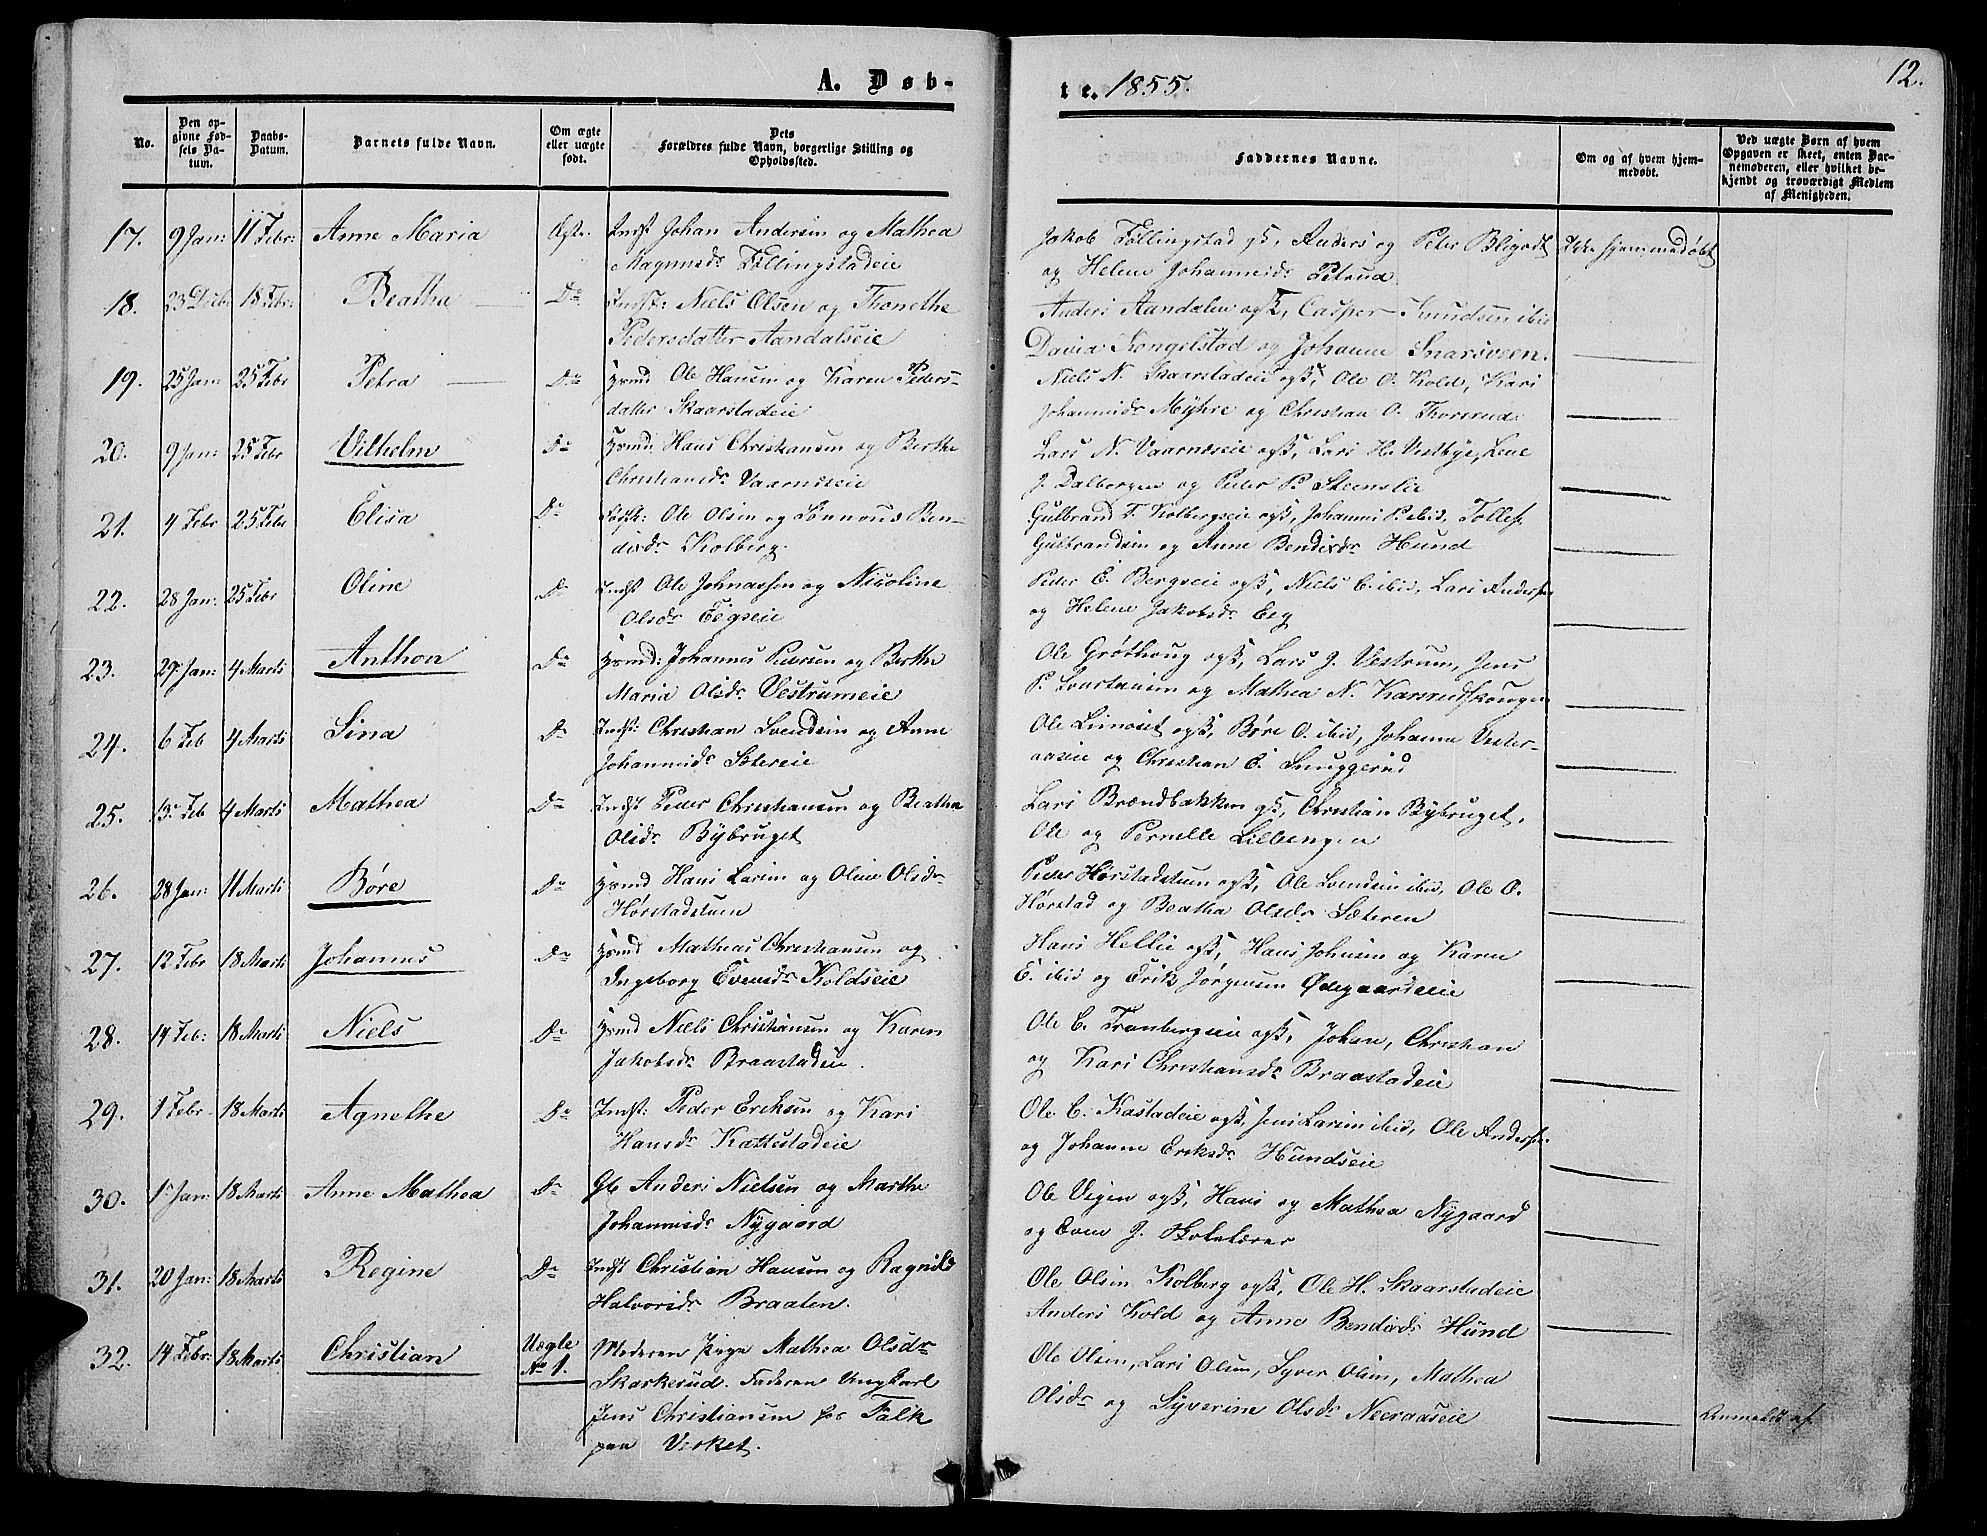 A. Døb-
te. 1855.
12.
No.
Den op-
givne Fød-
sels Da-
tum.
Daabs-
Datum.
Barnets fulde Navn.
Om ægte
eller uægte
født.
Dets
Forældres fulde Navn, borgerlige Stilling og
Opholdssted.
Faddernes Navne.
Om og af hvem hjem-
medøbt.
Ved uægte Børn af hvem
Opgaven er skeet, enten Bar-
nemoderen, eller hvilket be-
kjendt og troværdigt Medlem
af Menigheden.
17. 9 Jan: 11 Febr: Anne Maria Ægte. Indst Johan Andersen og Mathea
Magnusdr Føllingstadeie
Jakob Føllingstad gß, Anders og Peder Bligodt
og Helene Johannesdr Petrud.
Ikke hjemmedøbt
18. 23 Decbr 18 Febr: Beathe Do Indst: Niels Olsen og Thonethe
Pedersdatter Aandalseie
Anders Aandalen ogß, Casper Knudsen ibid
David Kongelstad og Johanne Snarsveen.
19. 25 Jan: 25 Febr Petra Do Hsmd Ole Hansen og Karen Peders-
datter Skaarstadeie
Niels N. Skaarstadeie ogß, Ole O. Kold, Kari
Johannesdr Myhre og Christian O. Thorsrud.
20. 9 Jan: 25 Febr Vilhelm Do Hsmd: Hans Christiansen og Berthe
Christiansdr Vaarnæseie
Lars N. Vaarnæseie ogß, Lars H. Vestbye, Lene
J. Dalborgen og Peder P. Steenslie
21. 4 Febr 25 Febr Elisa Do Ole Olsen og Sønnove Ben-
dixdr Kolberg.
Gulbrand T. Kolbergseie ogß, Johannes P. ibid, Tollef
Gulbrandsen og Anne Bendixdr Hund
22. 28 Jan: 25 Febr Oline Do Indst Ole Johnassen og Nicoline
Olsdr Eegseie
Peder E. Bergseie ogß, Niels E. ibid, Lars Andersen
og Helene Jakobsdr Eeg
23. 29 Jan: 4 Marts Anthon Do Hsmd: Johannes Petersen og Berthe
Maria Olsdr Vestrumeie
Ole Grøthoug ogß, Lars J. Vestrum, Jens
P. og Mathea N. Karsrudskougen
24. 6 Feb 4 Marts Sina Do Indst: Christian Svendsen og Anne
Johannesdr Sætereie
Ole Limoset ogß, Børe O. ibid, Johanne Vester-
aaseie og Christian E. Snuggerud
25. 13. Feb 4 Marts Mathea Do Indst Peder Christiansen og Beathe
Olsdr Bybruget
Lars Brændbakken gß, Christian Bybruget,
Ole og Pernelle Lilleengen
26. 28 Jan: 11 Marts Børe Do Hsmd Hans Larsen og Oline Olsdr
Hørstadstuen
Peder Hørstadstuen ogß, Ole Svendsen ibid, Ole O.
Hørstad og Beatha Olsdr Sæteren
27. 12 Febr 18 Marts Johannes Do Hsmd Mathias Christiansen og
Ingeborg Evensdr Koldseie
Hans Hellie ogß, Hans Johnsen og Karen
E. ibid og Erik Jørgensen Ødegaardseie
28. 14 Feb: 18 Marts Niels Do Hsmd Niels Christiansen og Karen
Jakobsdr Braastadeie.
Ole C. Tronbergseie ogß, Johan, Christian
og Kari Christiansdr Braastadeie
29. 1 Febr 18 Marts Agnethe Do Indst: Peder Eriksen og Kari
Hansdr Kattestadeie
Ole C. Kastadeie ogß, Jens Larsen ibid, Ole Andersen
og Johanne Eriksdr Hundseie
30. 1 Jan: 18 Marts Anne Mathea Do Gb Anders Nielsen og Marthe
Johannesdr Nygaard
Ole Vigen ogß, Hans og Mathea Nygaard
og Even J.
31. 20 Jan: 18 Marts Regine Do Indst Christian Hansen og Ragnild
Halvorsdr Braaten.
Ole Olsen Kolberg ogß, Ole H. Skaarstadeie
Anders Kold og Anne Bendixdr Hund
32. 14 Febr: 18 Marts Christian Uægte
No 1. Moderen Pige Mathea Olsdr
Skarkerud. Faderen Ungkarl
Jens Christiansen fra Falk
paa Verket.
Ole Olsen, Lars Olsen, Syver Olsen, Mathea
Olsdr og Syverine Olsdr Neeraaseie
Anmeldt af